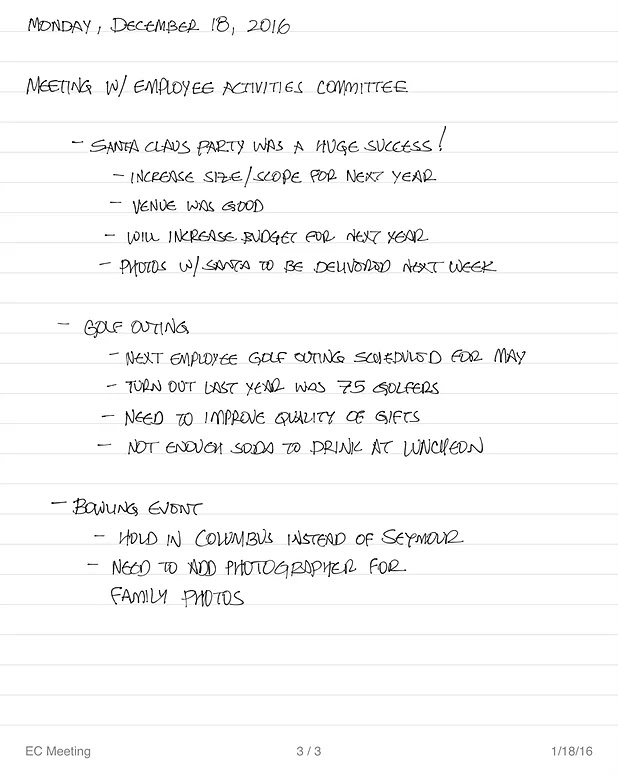 MONDAY, DECEMBER 18, 2016
MEETING W/ EMPLOYEE ACTIVITIES COMMITTEE
- SANTA CLAUS PARTY WAS A HUGE SUCCESS!
- INCREASE SIZE/SCOPE FOR NEXT YEAR
- VENUE WAS GOOD
- WILL INCREASE BUDGET FOR NEXT YEAR
- PHOTOS W/ SANTA TO BE DELIVERED NEXT WEEK
- GOLF OUTING
- NEXT EMPLOYEE GOLF OUTING SCHEDULED FOR MAY
- TURN OUT LAST YEAR WAS 75 GOLFERS
- NEED TO IMPROVE QUALITY OF GIFTS
- NOT ENOUGH SODA TO DRINK AT LUNCHEON
- BOWLING EVENT
- HOLD IN COLUMBUS INSTEAD OF SEYMOUR
- NEED TO ADD PHOTOGRAPHER FOR
FAMILY PHOTOS
EC Meeting 3 / 3 1/18/16